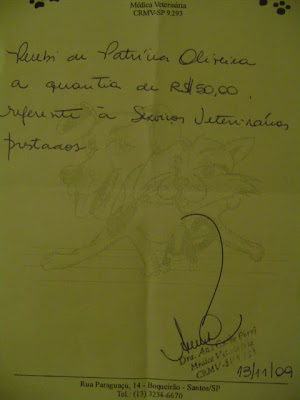 Médica Veterinária
CRMV-SP 9293
Recebi de Patrícia Oliveira
a quantia de R$ 50,00
referente à Serviços Veterinários
prestados.
Dra.
Médica Veterinária
CRMV-SP 9293
13/11/09.
Rua Paraguaçu, 14 - Boqueirão - Santos/SP
Tel.: (13) 3234-6670